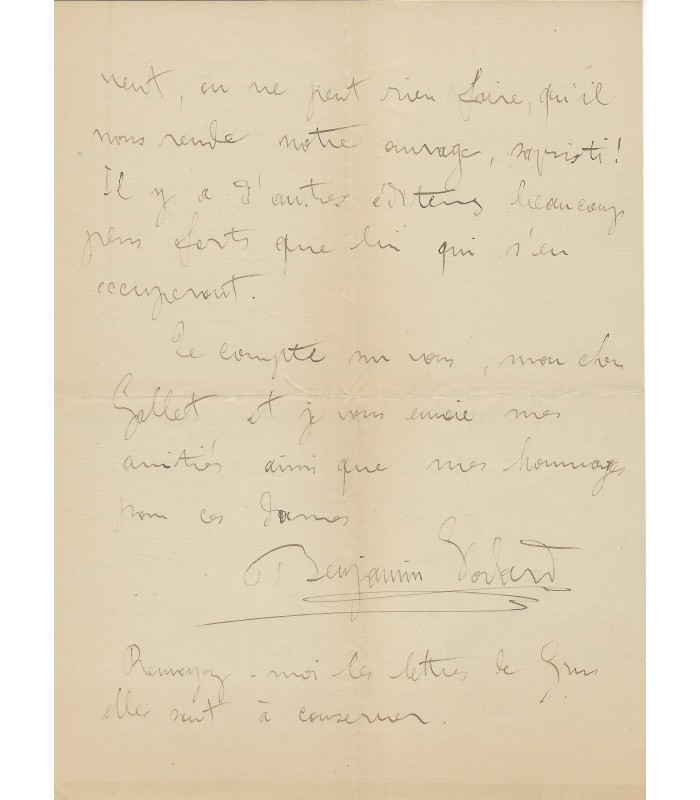 veut, on ne peut rien faire, qu'il
nous rende notre ouvrage, sapristi!
Il y a d'autres éditeurs beaucoup
plus forts que lui qui s'en
occuperont.
Je compte sur vous, mon cher
Gallet et je vous envoie mes
amitiés ainsi que mes hommages
pour ces dames
Benjamin Godard
Renvoyez-moi les lettres de Grus
elles sont à conserver.